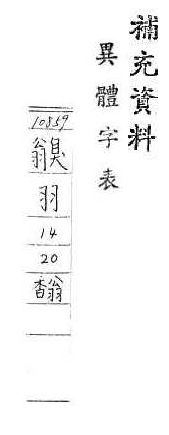 補充資料
異體字表
10859
羽
14
20